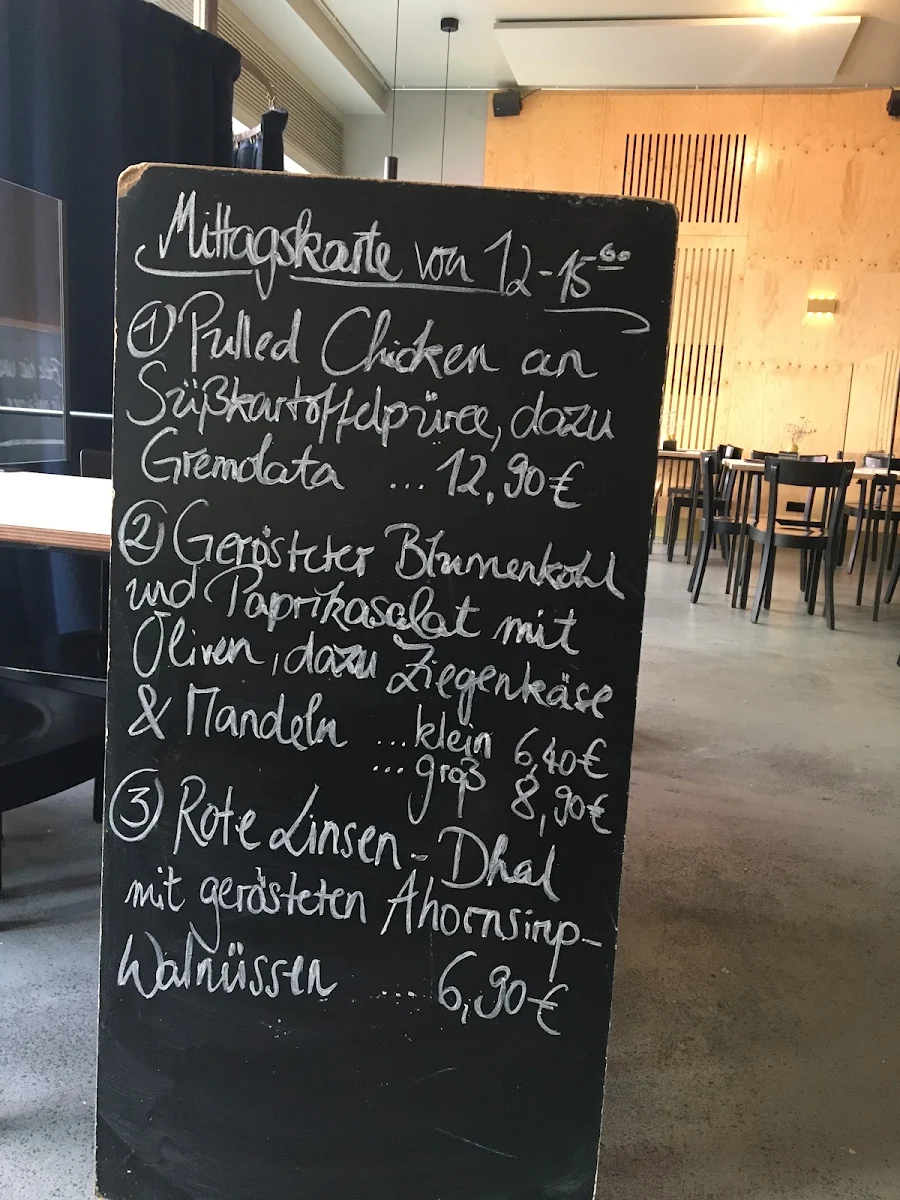 Mittagskarte von 12-15⁰⁰
① Pulled Chicken an
Süßkartoffelpüree, dazu
Gremolata ... 12,90€
② Gerösteter Blumenkohl
und Paprikasalat mit
Oliven, dazu Ziegenkäse
& Mandeln ... klein 6,40€
... groß 8,90€
③ Rote Linsen-Dhal
mit gerösteten Ahornsirup-
Walnüssen ... 6,90€